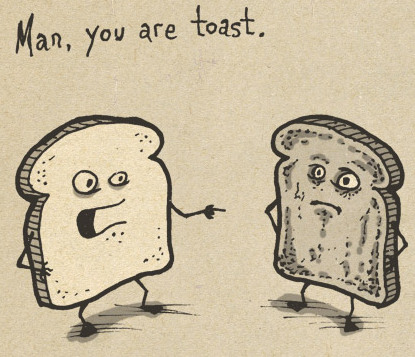 Man, you are toast.